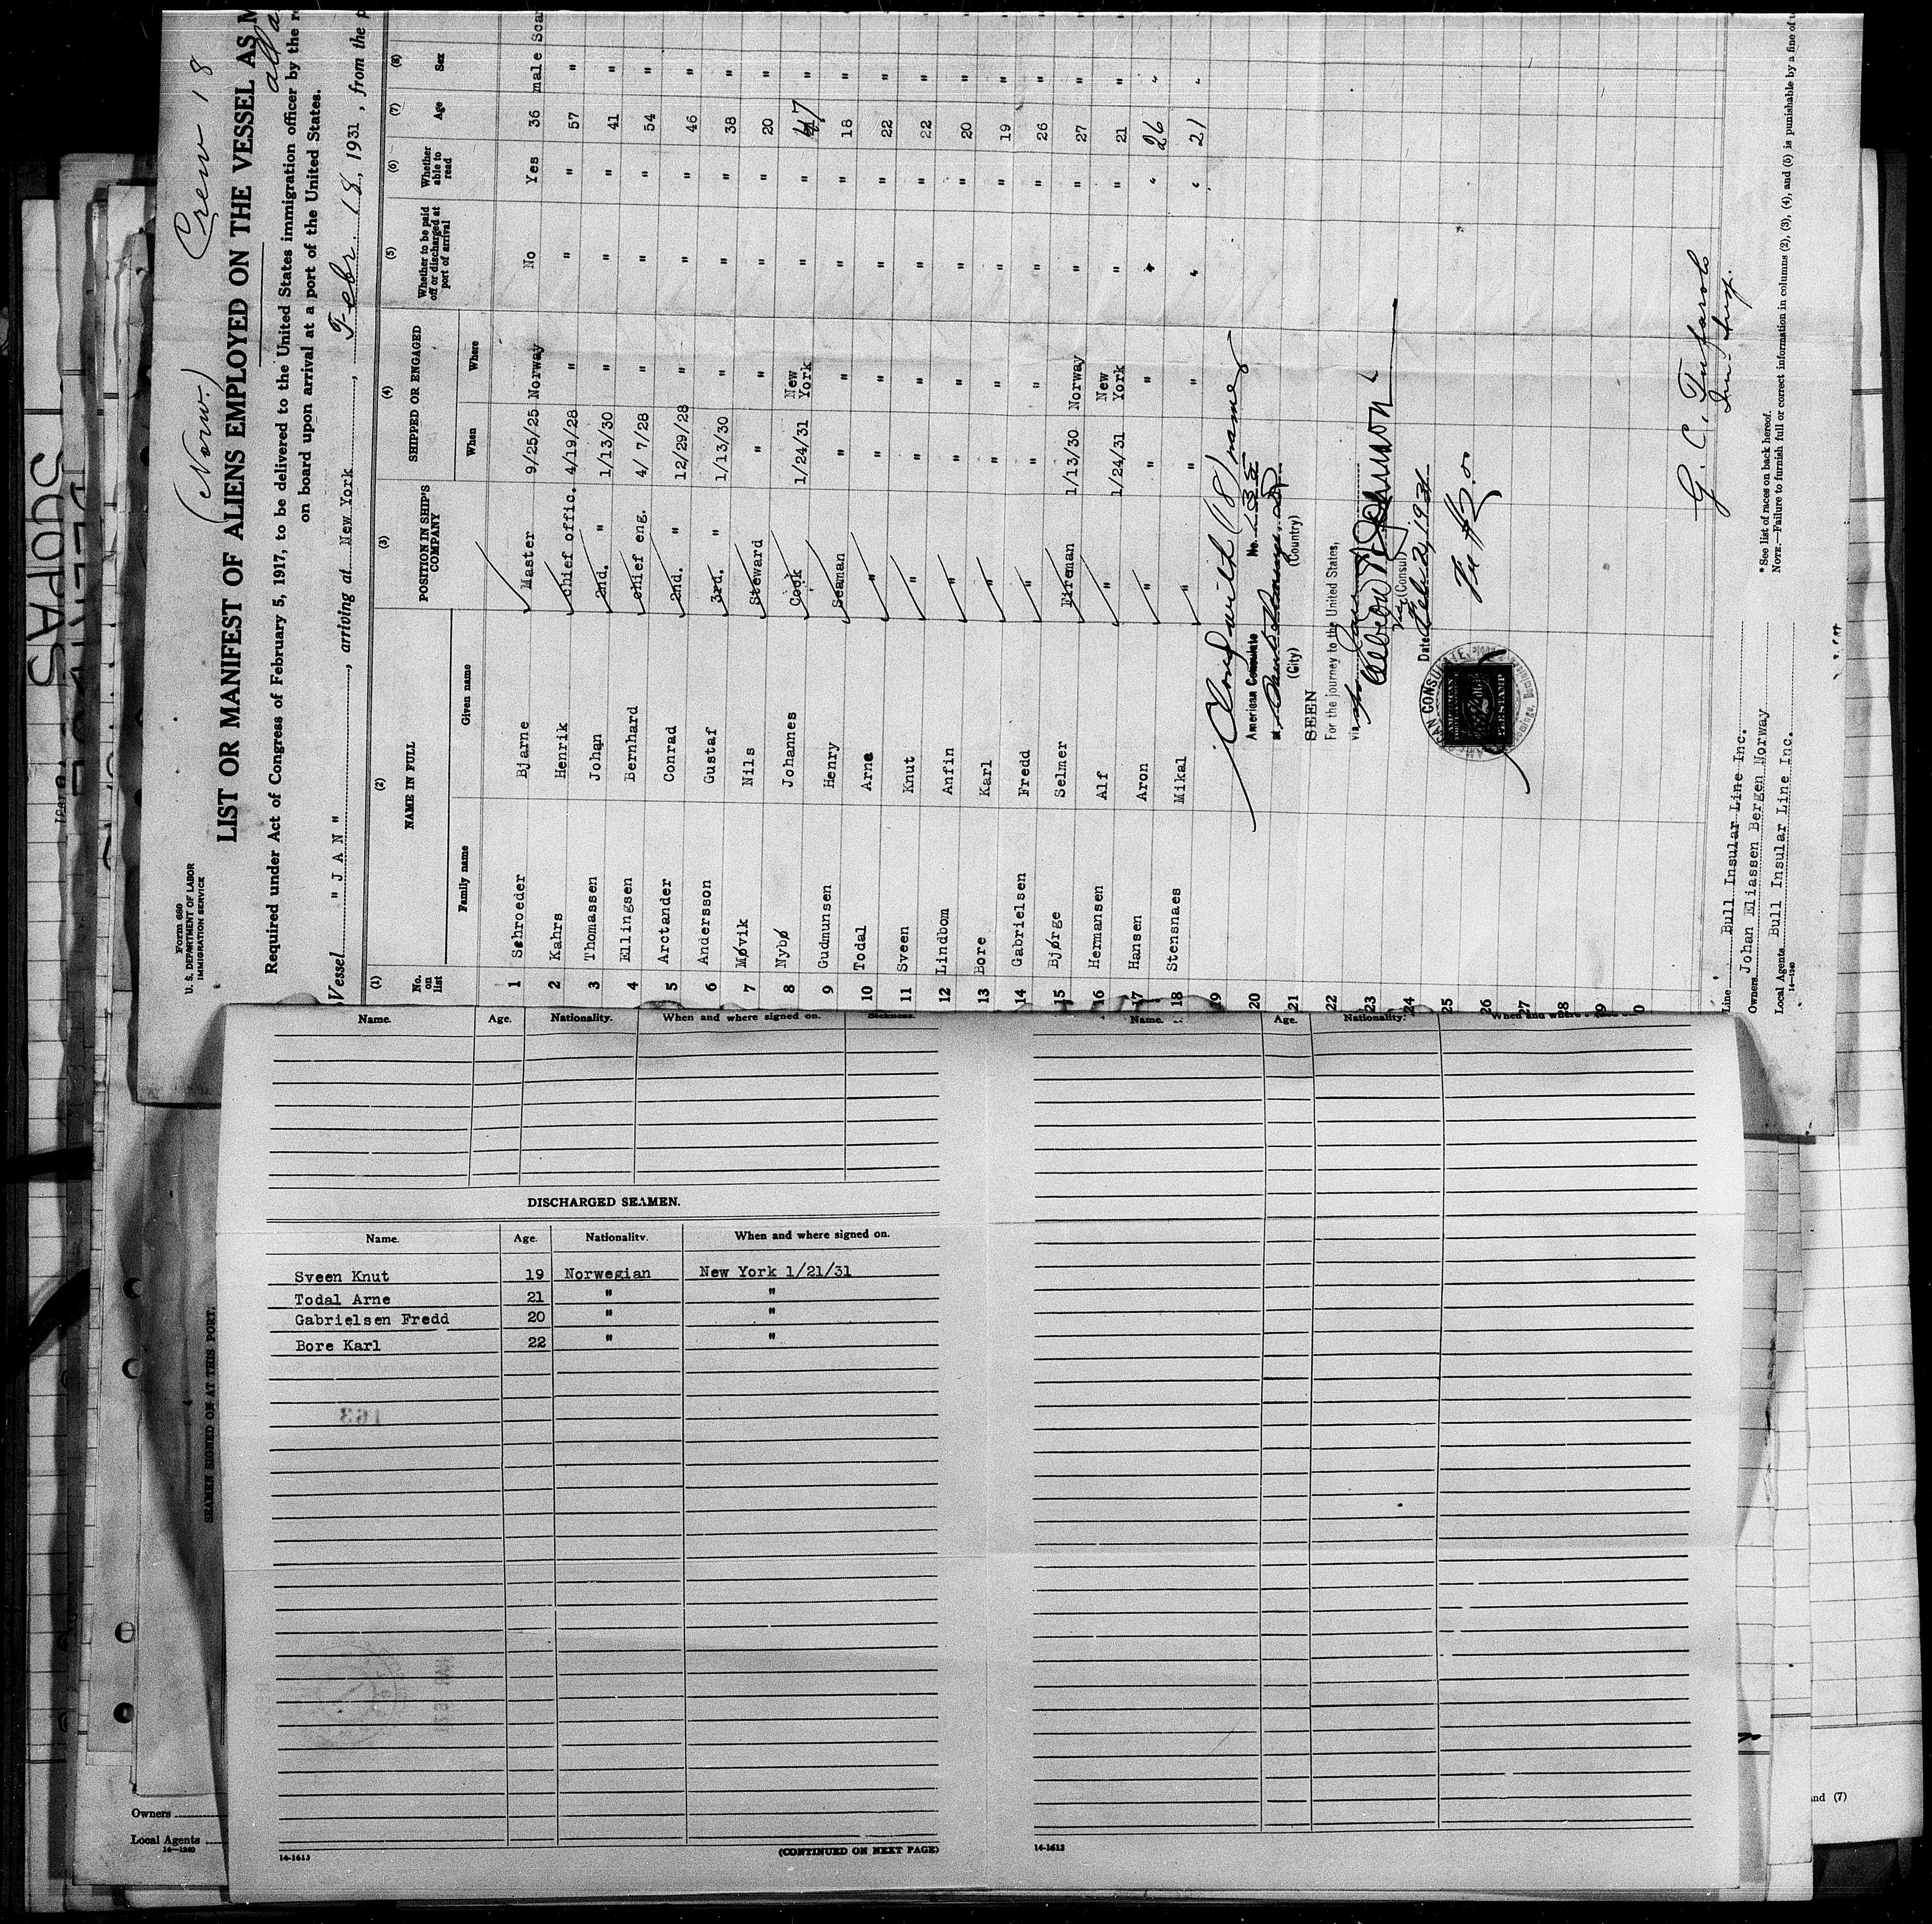 Form 680
U. S. DEPARTMENT OF LABOR
IMMIGRATION SERVICE
(Norw.)
Crew 18
LIST OR MANIFEST OF ALIENS EMPLOYED ON THE VESSEL AS M
Required under Act of Congress of February 5, 1917, to be delivered to the United States immigration officer by the r
on board upon arrival at a port of the United States.
Vessel "JAN", arriving at New York, Febr. 18, 1931, from the p
(1) (2) (3) (4) (5) (6) (7) (8)
No. on list NAME IN FULL POSITION IN SHIP'S COMPANY SHIPPED OR ENGAGED Whether to be paid off or discharged at port of arrival Whether able to read Age Sex
Family name Given name When Where
1 Schroeder Bjarne Master 9/25/25 Norway No Yes 36 male Sca
2 Kahrs Henrik chief offic. 4/19/28 " " " 57 "
3 Thomassen Johan 2nd. " 1/13/30 " " " 41 "
4 Ellingsen Bernhard chief eng. 4/ 7/28 " " " 54 "
5 Arctander Conrad 2nd. " 12/29/28 " " " 46 "
6 Andersson Gustaf 3rd. " 1/13/30 " " " 38 "
7 Møvik Nils Steward " " " " 20 "
8 Nybø Johannes Cook 1/24/31 New York " " 47 "
9 Gudmunsen Henry Seaman " " " " 18 "
10 Todal Arne " " " " " 22 "
11 Sveen Knut " " " " " 22 "
12 Lindbom Anfin " " " " " 20 "
13 Bore Karl " " " " " 19 "
14 Gabrielsen Fredd " " " " " 26 "
15 Bjørge Selmer Fireman 1/13/30 Norway " " 27 "
16 Hermansen Alf " 1/24/31 New York " " 21 "
17 Hansen Aron " " " " " 26 "
18 Stensnaes Mikal " " " " " 21 "
19
20
21
22
23
24
25
26
27
28
29
0
with (18) names
American Consulate No.
(City) (Country)
SEEN
For the journey to the United States,
via
(Consul)
Date
AMERICAN CONSULATE
FEE STAMP
G. C.
Line Bull Insular Line Inc.
Owners Johan Eliassen Bergen Norway
Local Agents Bull Insular Line Inc.
14-1240
*See list of races on back hereof.
NOTE.—Failure to furnish full or correct information in columns (2), (3), (4), and (5) is punishable by a fine of
Name. Age. Nationality. When and where signed on. Sickness.
DISCHARGED SEAMEN.
Name. Age. Nationality. When and where signed on.
Sveen Knut 19 Norwegian New York 1/21/31
Todal Arne 21 " "
Gabrielsen Fredd 20 " "
Bore Karl 22 " "
14-1613
(CONTINUED ON NEXT PAGE)
Name. Age. Nationality. When and where
14-1613
SEAMEN SIGNED ON AT THIS PORT.
Owners
Local Agents
14-1240
and (7)